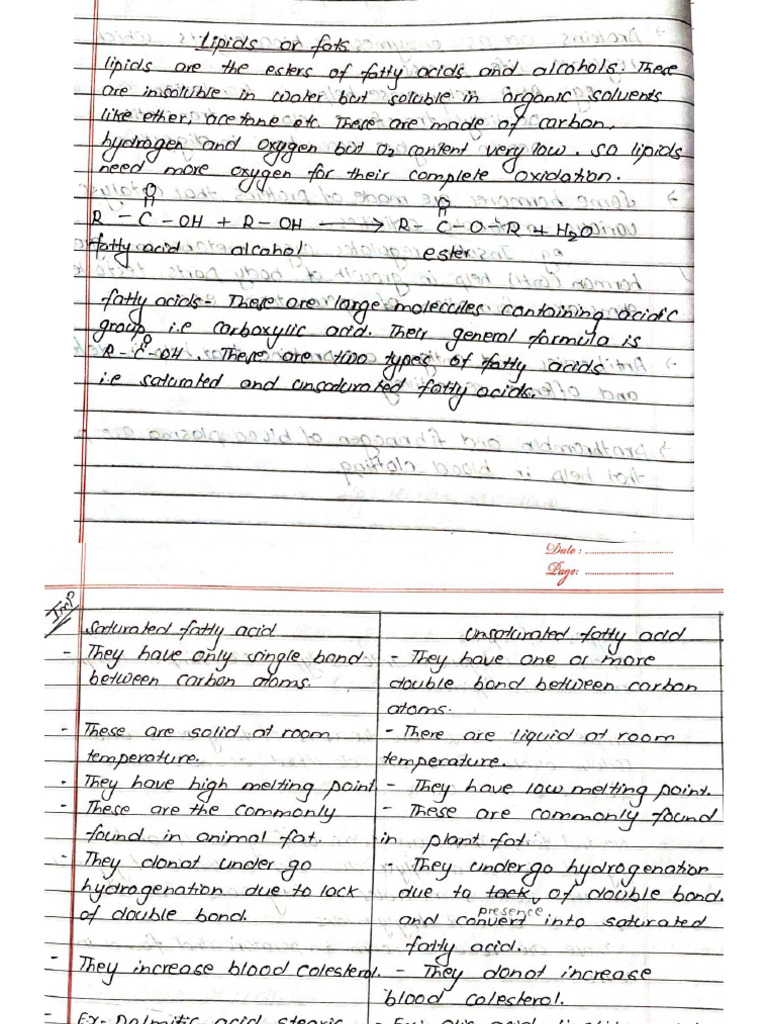 Lipids or fats
lipids are the esters of fatty acids and alcohols. These
are insoluble in water but soluble in organic solvents
like ether, acetone etc. These are made of carbon,
hydrogen and oxygen but O2 content very low. So lipids
need more oxygen for their complete oxidation.
O O
R - C - OH + R - OH → R - C - O - R + H2O
fatty acid alcohol ester
fatty acids - These are large molecules containing acidic
group i.e carboxylic acid. Their general formula is
R - C - OH. These are two types of fatty acids
O
i.e saturated and unsaturated fatty acids.
Date :
Page:
Imp
saturated fatty acid
- They have only single bond
between carbon atoms.
- These are solid at room
temperature.
- They have high melting point.
- These are the commonly
found in animal fat.
- They donot under go
hydrogenation due to lack
of double bond.
- They increase blood colesterol.
- Ex- Palmitic acid, stearic
unsaturated fatty acid
- They have one or more
double bond between carbon
atoms.
- There are liquid at room
temperature.
- They have low melting point.
- These are commonly found
in plant fat.
- They undergo hydrogenation
due to lack of double bond.
presence
and convert into saturated
fatty acid.
- They donot increase
blood colesterol.